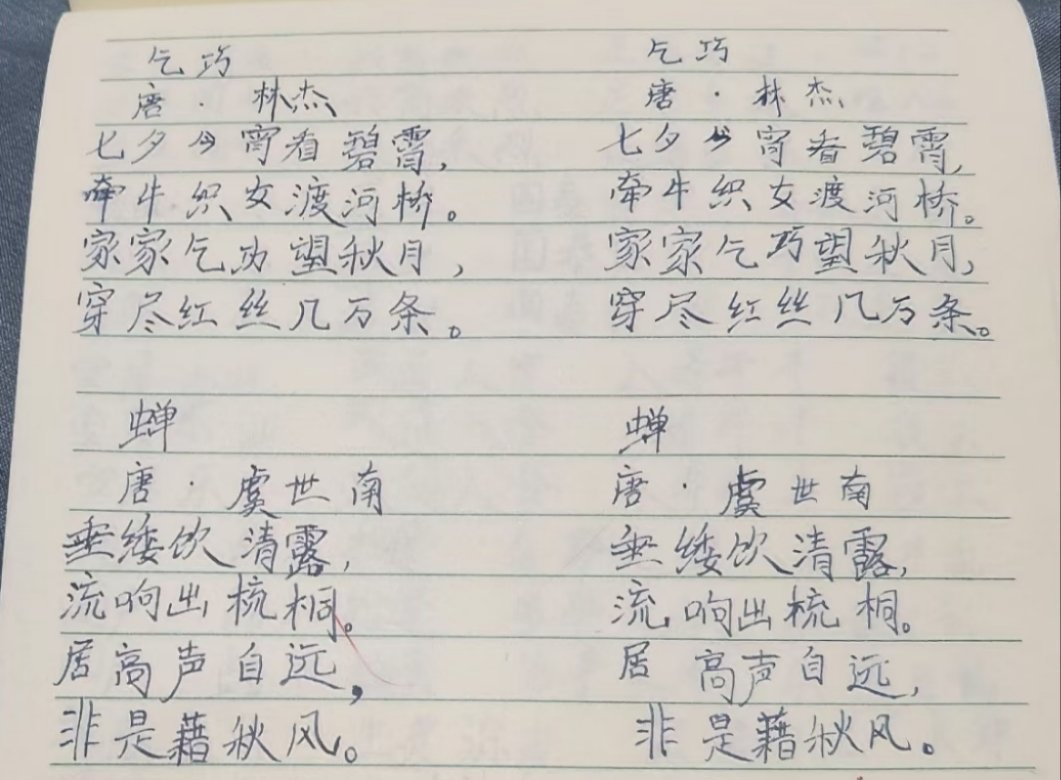 乞巧
唐·林杰
七夕今宵看碧霄,
牵牛织女渡河桥。
家家乞功望秋月,
穿尽红丝几万条。
蝉
唐·虞世南
垂緌饮清露,
流响出梳桐。
居高声自远,
非是藉秋风。
乞巧
唐·林杰
七夕今宵看碧霄,
牵牛织女渡河桥。
家家乞巧望秋月,
穿尽红丝几万条。
蝉
唐·虞世南
垂緌饮清露,
流响出梳桐。
居高声自远,
非是藉秋风。